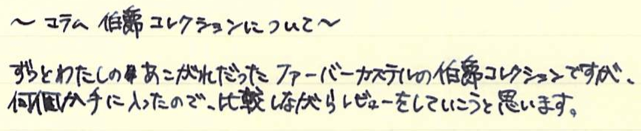 ～コラム 伯爵コレクションについて～
ずっとわたしのあこがれだったファーバーカステルの伯爵コレクションですが、
何個か手に入ったので、比較しながらレビューをしていこうと思います。